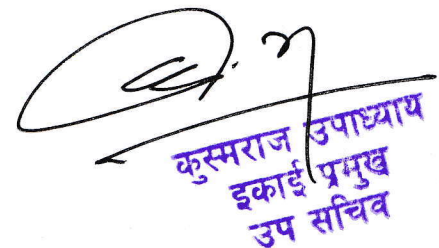 कुस्मराज उपाध्याय
इकाई प्रमुख
उप सचिव